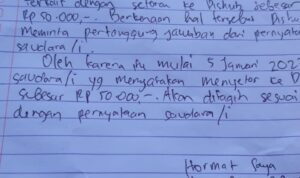 Terkait dengan setoran ke Dishub sebesar
Rp 50.000,-. Berkenaan hal tersebut Dish
Meminta pertanggung jawaban dari pernyat
saudara/i.
Oleh karena itu mulai 5 Januari 202
saudara/i yg menyatakan menyetor ke D
sebesar Rp 50.000,-. Akan ditagih sesuai
dengan pernyataan saudara/i
Hormat Saya